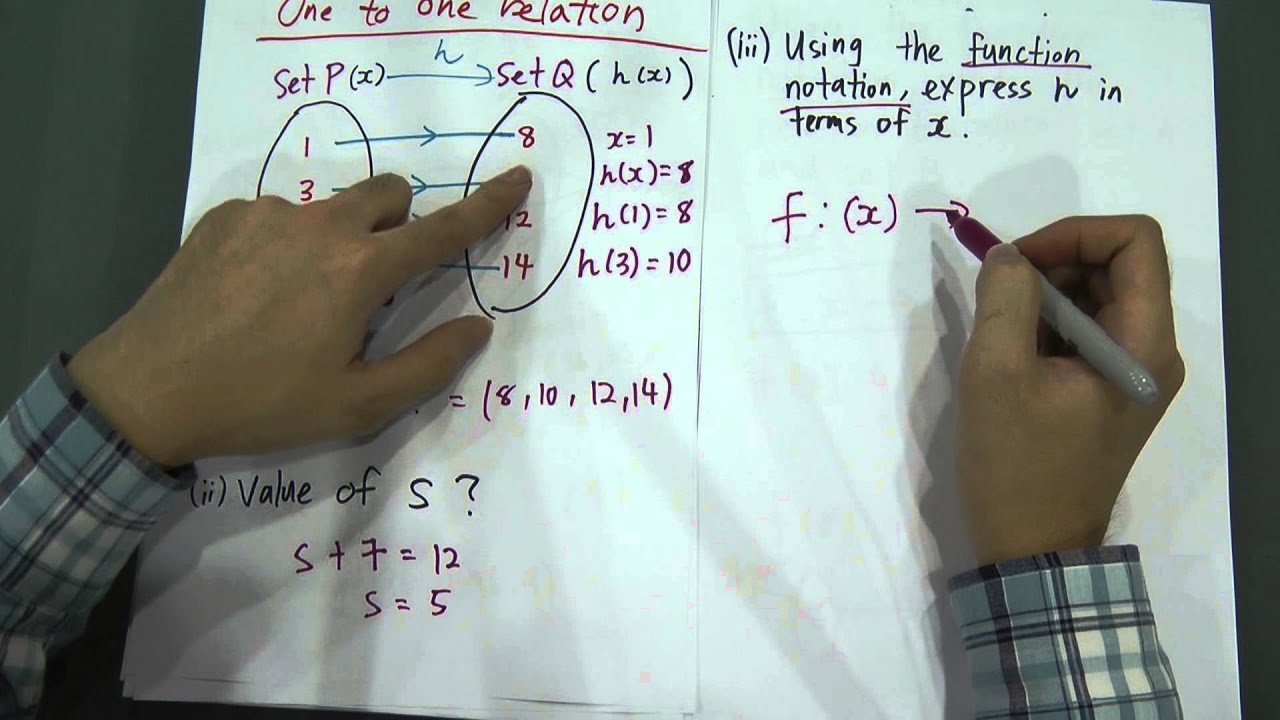 One to one Relation
h
Set P(x) Set Q ( h(x) )
1 8 x = 1
3 h(x) = 8
12 h(1) = 8
14 h(3) = 10
= (8, 10, 12, 14)
(ii) Value of s ?
s + 7 = 12
s = 5
(iii) Using the function
notation, express h in
terms of x.
f : (x) →